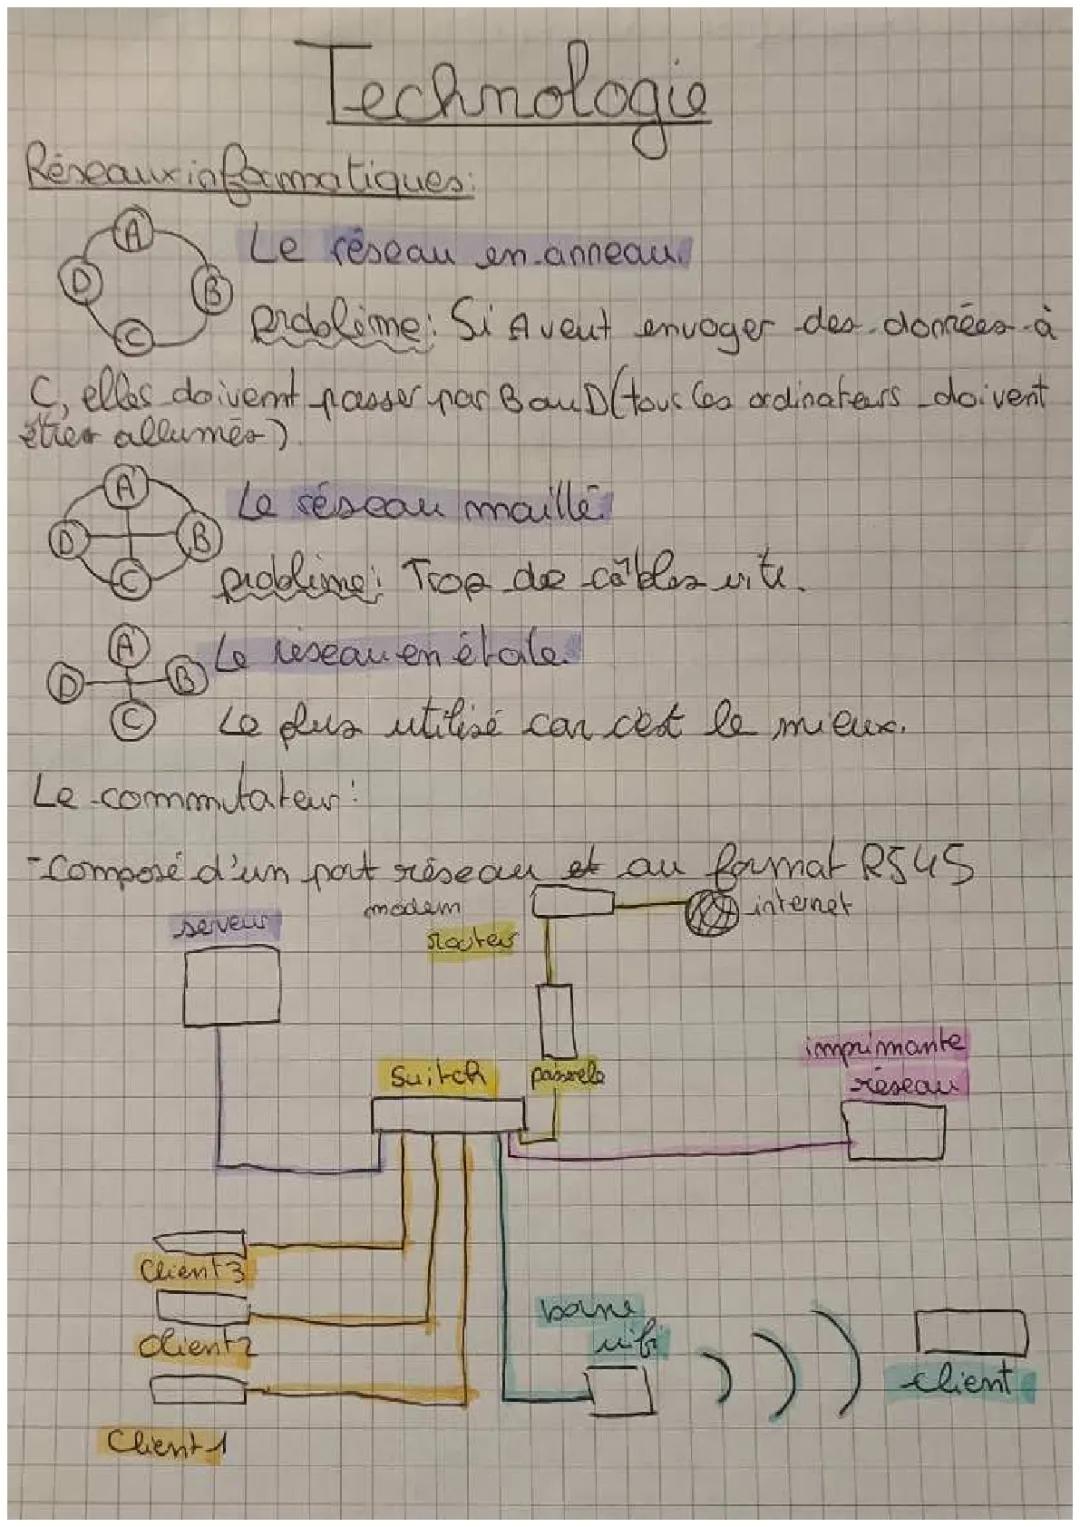 Technologie
Réseaux informatiques:
A
D
B
C
Le réseau en anneau
problème: Si A veut envoyer des données à
C, elles doivent passer par B ou D (tous les ordinateurs doivent
être allumés)
A
D
B
C
Le réseau maillé
problème: Trop de câbles vite.
A
D
B
C
Le réseau en étoile
Le plus utilisé car c'est le mieux.
Le commutateur:
-Composé d'un port réseau et au format RJ45
modem
internet
serveur
routeur
imprimante
réseau
Switch
Client 3
borne
wifi
Client 2
client
Client 1